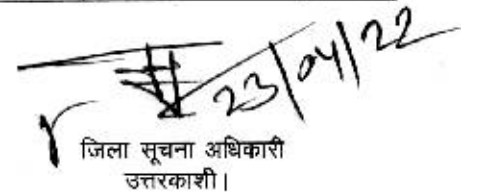 23/04/22
जिला सूचना अधिकारी
उत्तरकाशी।